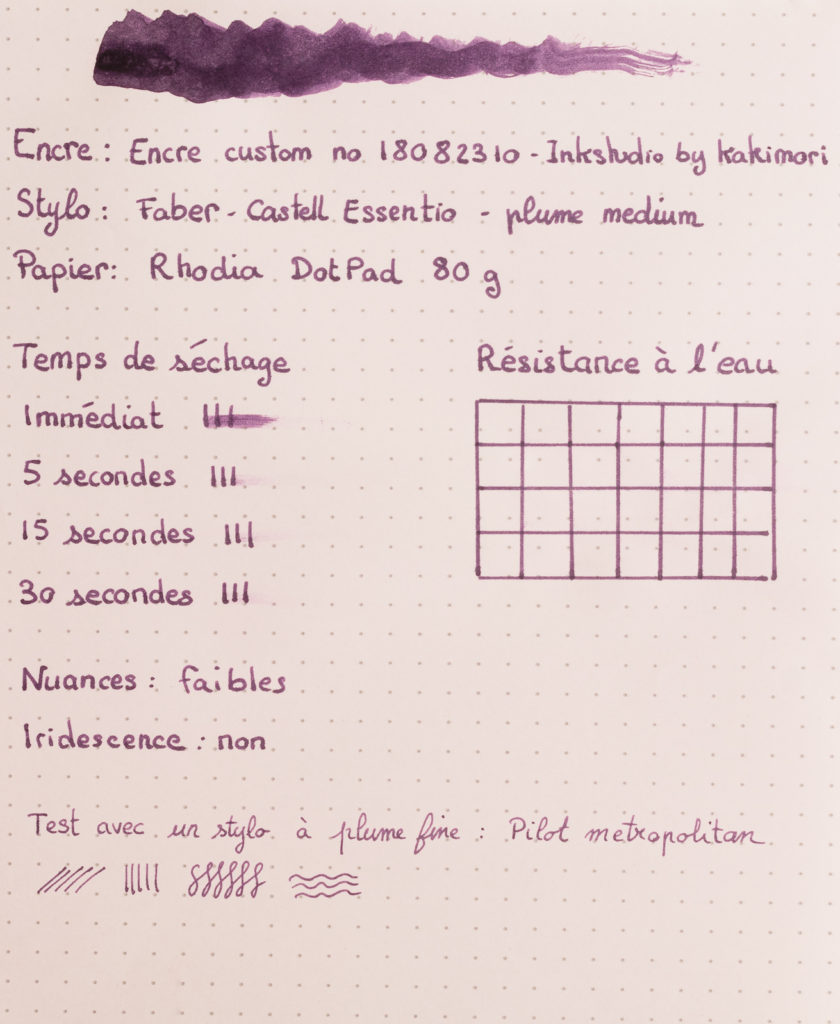 Encre : Encre custom no 18082310 - Inkstudio by Kakimori
Stylo : Faber-Castell Essentio - plume medium
Papier : Rhodia DotPad 80 g
Temps de séchage
Immédiat
5 secondes
15 secondes
30 secondes
Résistance à l'eau
Nuances : faibles
Iridescence : non
Test avec un stylo à plume fine : Pilot metropolitan